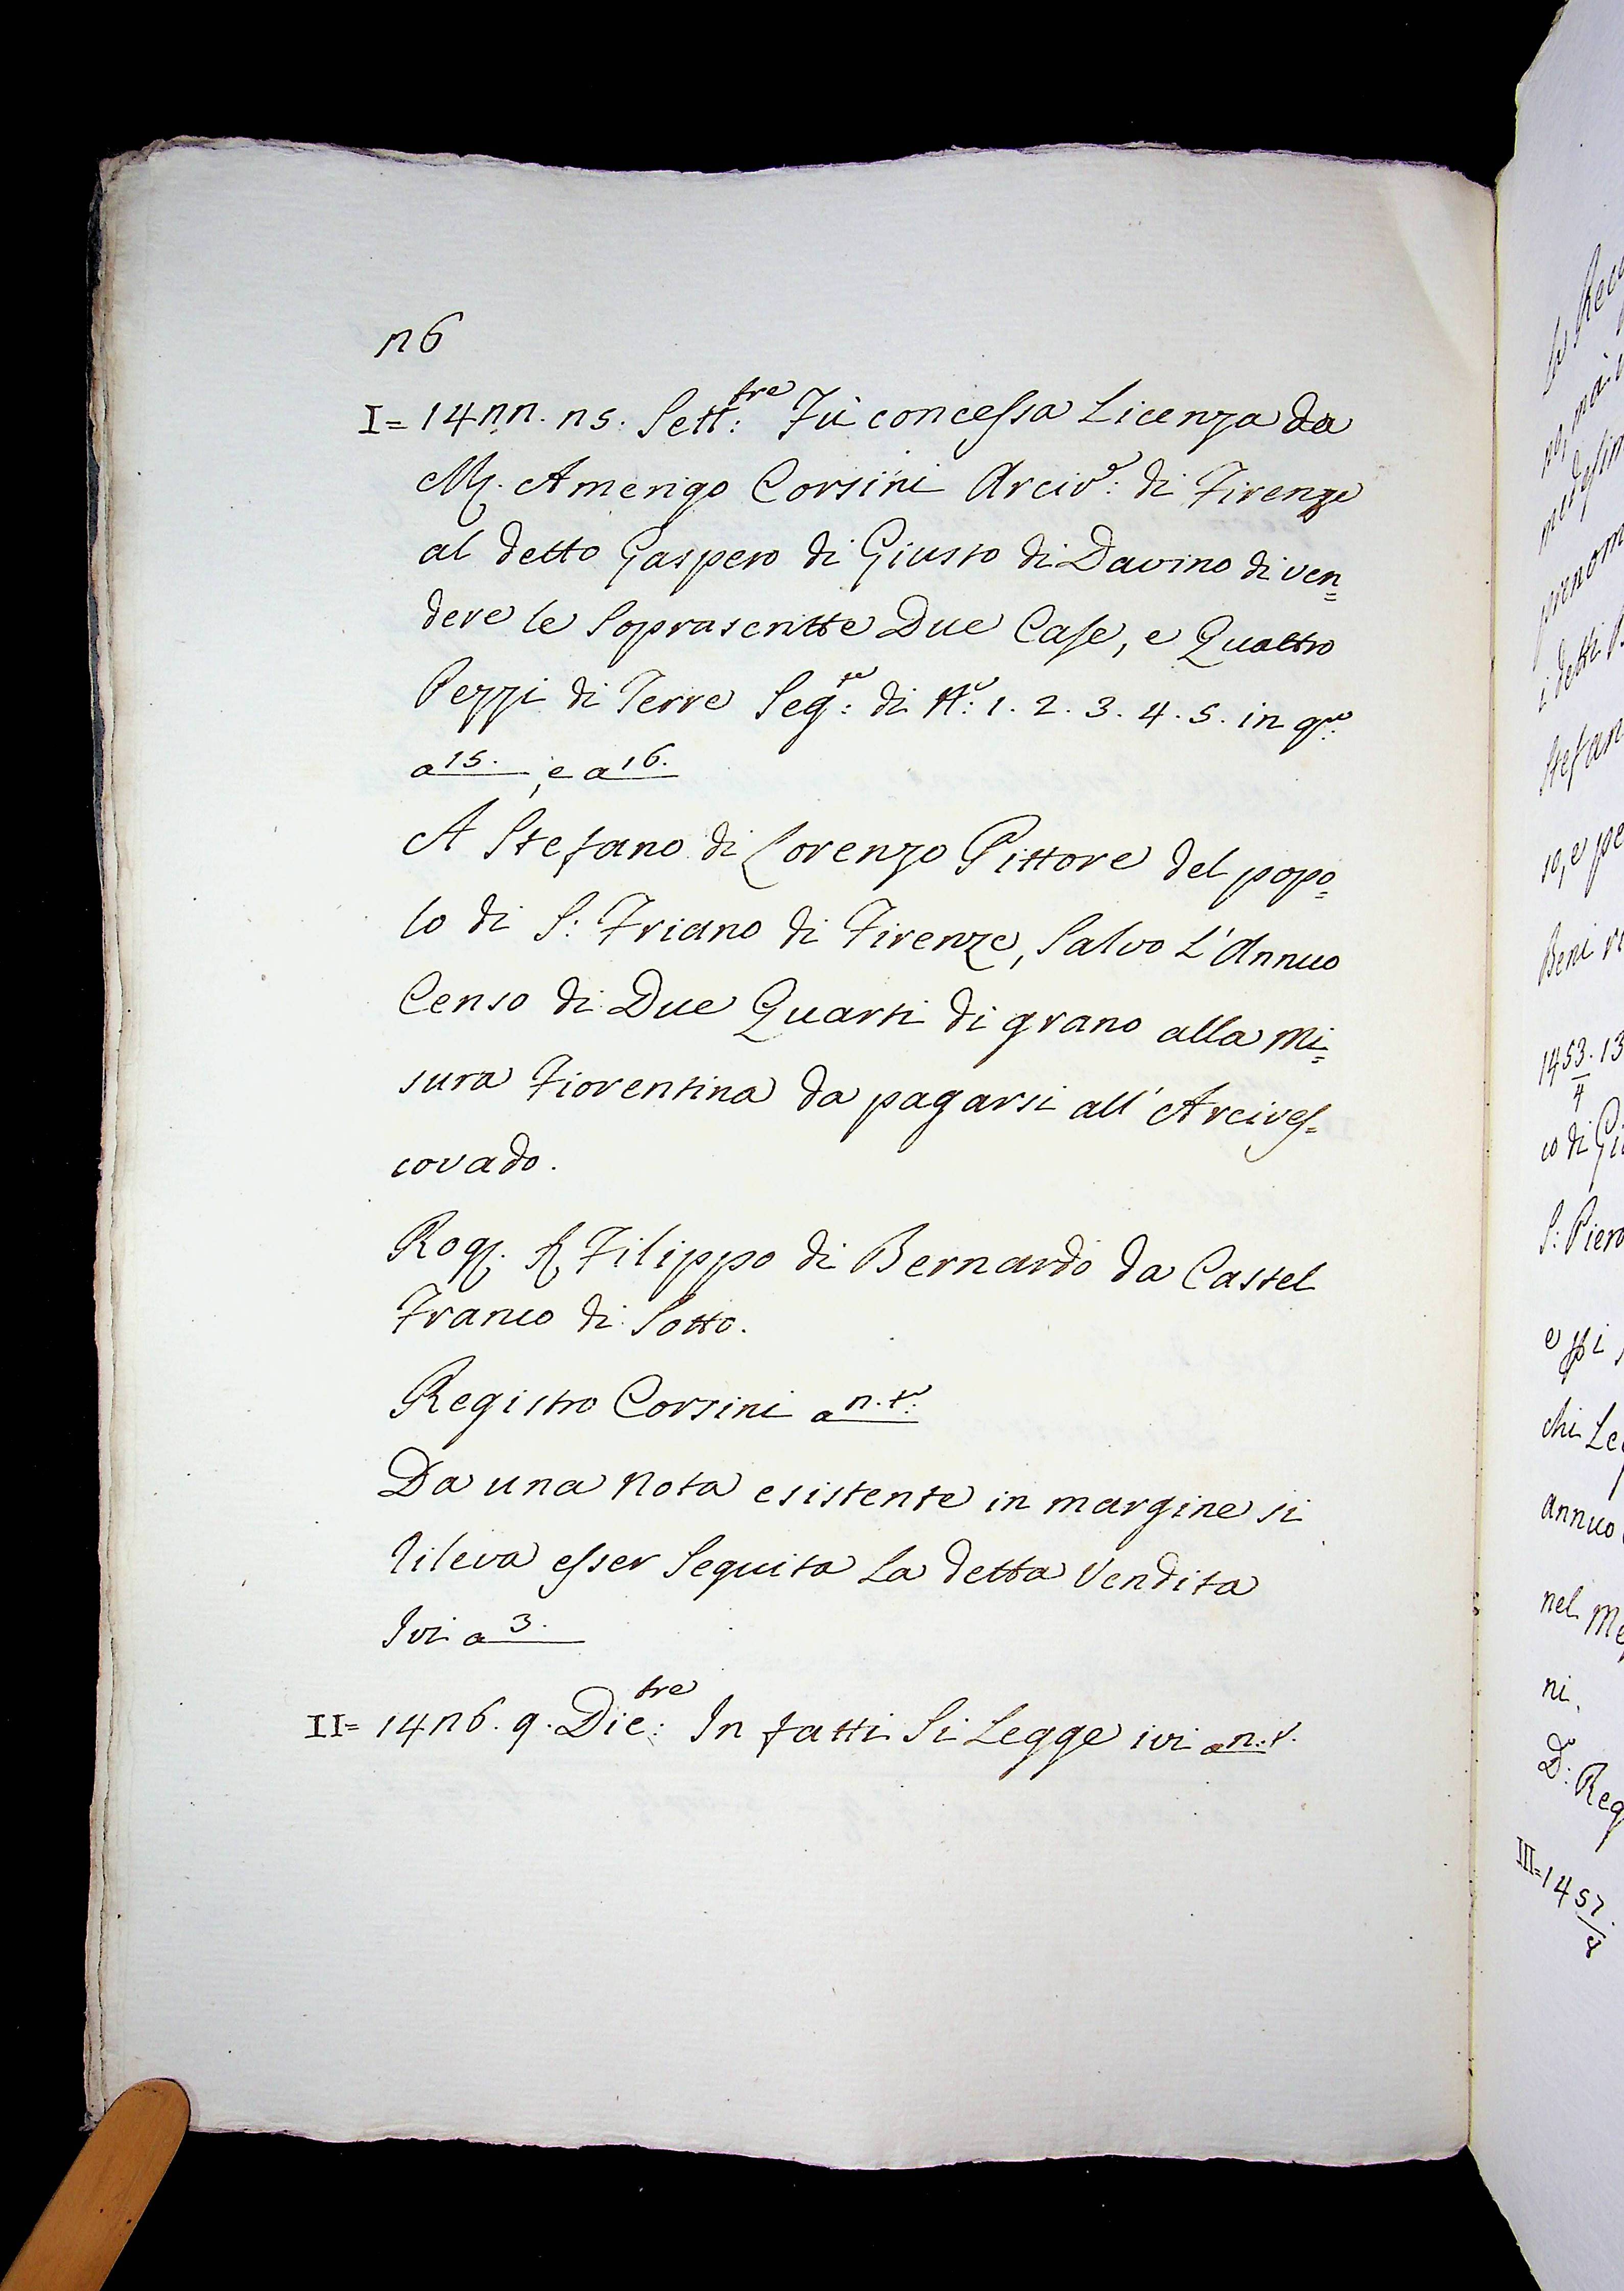 26
I = 1422. 25. Sett:tre Fù concessa Licenza da
M. Amerigo Corsini Arciv:o di Firenze
al detto Gaspero di Giusto di Davino di ven=
dere le Soprascritte Due Case, e Quattro
Pezzi di Terre Seg:te di N:o 1. 2. 3. 4. 5. in q:to
a 15. , e a 16.
A Stefano di Lorenzo Pittore del popo=
lo di S: Friano di Firenze, Salvo L'Annuo
Censo di Due Quarti di grano alla Mi=
sura Fiorentina da pagarsi all'Arcives=
covado.
Rog. S. Filippo di Bernardo da Castel
Franco di Sotto.
Registro Corsini a 2.t:o
Da una Nota esistente in margine si
rileva esser Seguita La detta Vendita
Ivi a 3.
II = 1426. 9. Dic:tre In fatti Si Legge ivi a 2:t.
i detti
Stefan
so, e pe
Beni
1453. 13
4
co di Gi
S: Piero
chi Le
annuo
nel Me
ni.
D:o Reg
III = 1457.
8